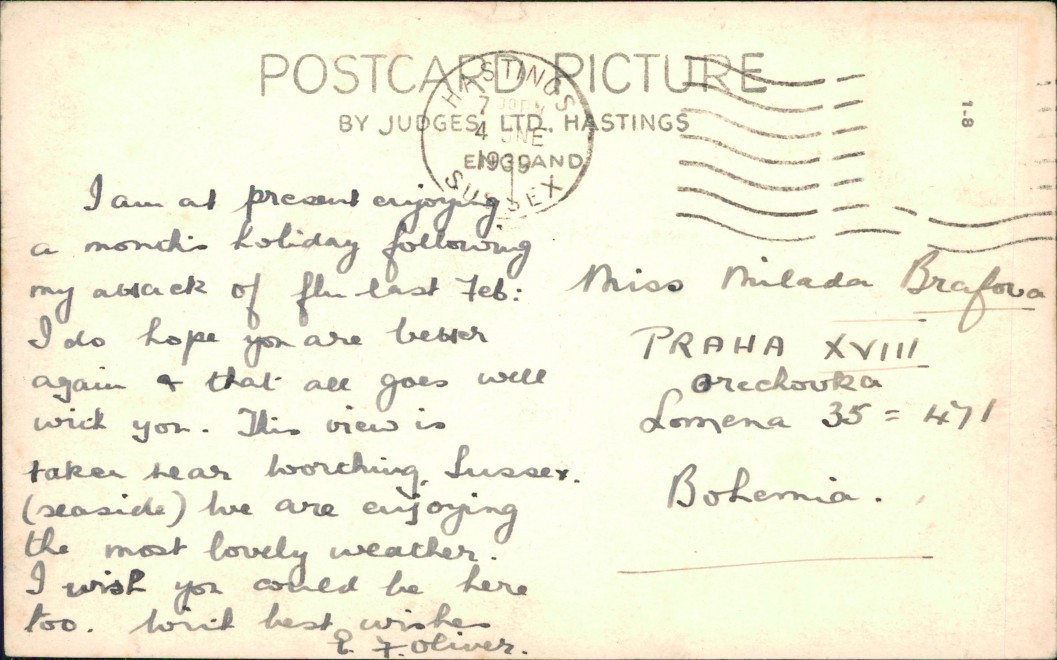 POSTCARD PICTURE
BY JUDGES, LTD, HASTINGS
ENGLAND
HASTINGS
7 PM
4 JNE
1939
SUSSEX
1-8
I am at present enjoying
a month's holiday following
my attack of flu last Feb:
I do hope you are better
again & that all goes well
with you. This view is
taken near Worthing, Sussex.
(seaside) We are enjoying
the most lovely weather.
I wish you could be here
too. With best wishes
E. F. Oliver.
Miss Milada Brafova
PRAHA XVIII
Orechovka
Lomena 35 = 471
Bohemia.